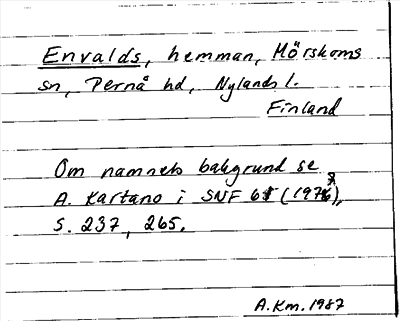 Envalds, hemman, Mörskoms
sn, Pernå hd, Nylands l.
Finland
Om namnets bakgrund se
A. Kartano i SNF (197),
s. 237, 265.
A.Km. 1987